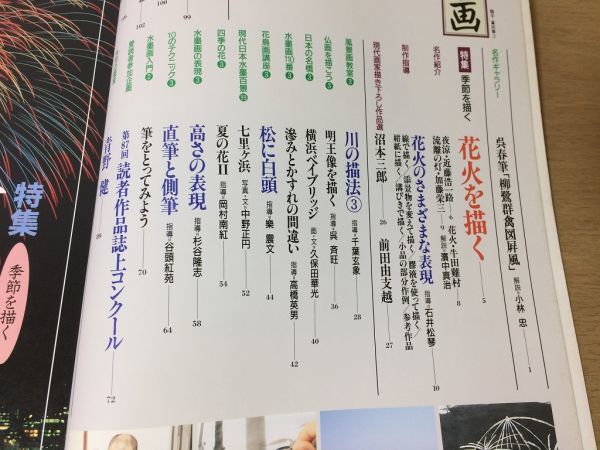 画
名作ギャラリー
呉春筆「柳鷺群禽図屏風」 解説・小林 忠 1
特集 季節を描く
花火を描く 5
名作紹介
夜涼・近藤浩一路 6 花火・牛田雞村 8
流離の灯・加藤栄三 9 解説・濱中真治
制作指導
花火のさまざまな表現 指導・石井松琴 10
線で描く／添景物を変えて描く／膠液を使って描く／
絹紙に描く／溝びきで描く／小品の部分作例／参考作品
現代画家描き下ろし作品選
沼本三郎 26 前田由支越 27
風景画教室③
川の描法③ 指導・千葉玄象 28
仏画を描こう③
明王像を描く 指導・呉 斉旺 36
日本の名橋③
横浜ベイブリッジ 画・文・久保田華光 40
水墨画110番③
滲みとかすれの間違い 指導・高橋英男 42
花鳥画講座③
松に白頭 指導・樂 震文 44
現代日本水墨百景
七里ヶ浜 写真・文・中野正円 52
四季の花③
夏の花Ⅱ 指導・岡村南紅 54
水墨画の表現③
高さの表現 指導・杉谷隆志 58
10のテクニック③
直筆と側筆 指導・谷頭紅苑 64
水墨画入門②
筆をとってみよう 70
愛読者参加企画
第87回 読者作品誌上コンクール 72
青野 健 89
99
102
特集
季節を描く